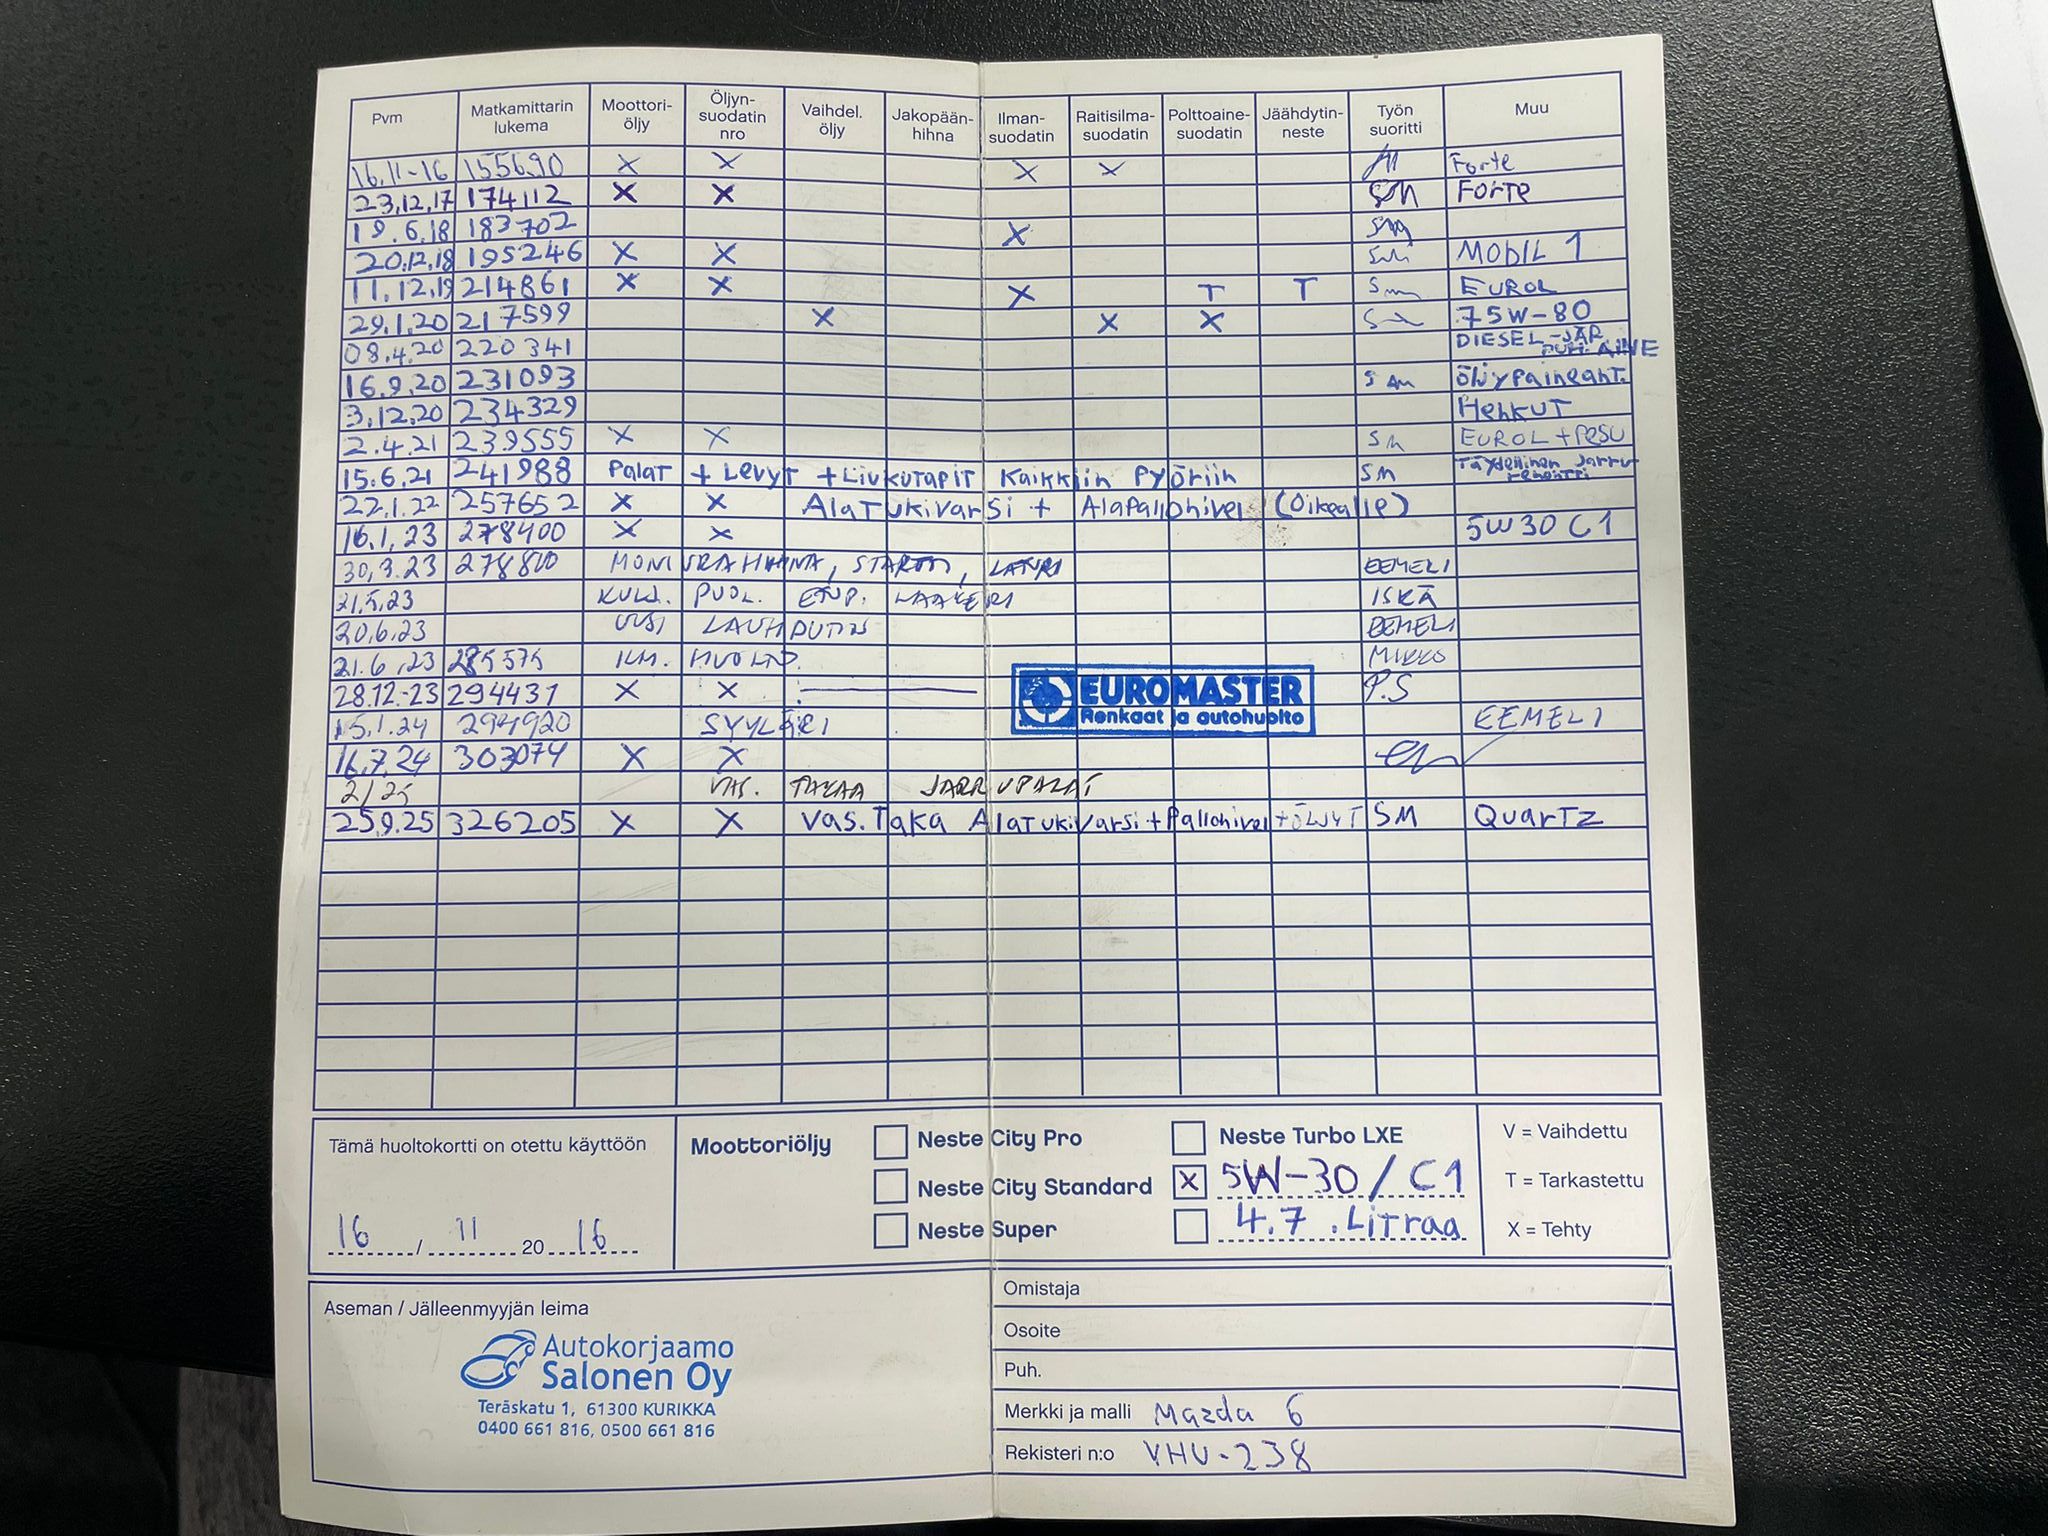 Pvm Matkamittarin lukema Moottori-öljy Öljyn-suodatin nro Vaihdel. öljy Jakopään-hihna Ilman-suodatin Raitisilma-suodatin Polttoaine-suodatin Jäähdytin-neste Työn suoritti Muu
16.11-16 155690 X X X X Forte
23.12.17 174112 X X Forte
19.6.18 183702 X
20.12.18 195246 X X MOBIL 1
11.12.19 214861 X X X T T EUROL
29.1.20 217599 X X X 75W-80
08.4.20 220341 DIESEL-JÄR PUH. AINE
16.9.20 231093 öljypaineant.
3.12.20 234329 Hehkut
2.4.21 239555 X X SM EUROL + Pesu
15.6.21 241988 Palat + Levyt + Liukutapit Kaikkiin Pyöriin SM Täydellinen Jarru-remontti
22.1.22 257652 X X Alatukivarsi + Alapallonivel (Oikealle)
16.1.23 278400 X X 5W30 C1
30.3.23 278800 MONIURAHIHNA, STARTTI, LATURI EEMELI
21.5.23 KULJ. PUOL. ETUP. LAAKERI ISKÄ
20.6.23 UUSI LAUHDUTIN EEMELI
21.6.23 285575 ILM. HUOLTO. MIKKO
28.12.23 294431 X X P.S
EUROMASTER
Renkaat ja autohuolto
15.1.24 294920 SYYLÄRI EEMELI
16.7.24 303074 X X
2/25 VAS. TAKAA JARRUPALAT
25.9.25 326205 X X Vas. Taka Alatukivarsi + Pallonivel + ÖLJYT SM Quartz
Tämä huoltokortti on otettu käyttöön
16 / 11 20 16
Moottoriöljy
Neste City Pro
Neste City Standard
Neste Super
Neste Turbo LXE
X 5W-30 / C1
4.7 .Litraa
V = Vaihdettu
T = Tarkastettu
X = Tehty
Aseman / Jälleenmyyjän leima
Autokorjaamo
Salonen Oy
Teräskatu 1, 61300 KURIKKA
0400 661 816, 0500 661 816
Omistaja
Osoite
Puh.
Merkki ja malli Mazda 6
Rekisteri n:o VHU-238